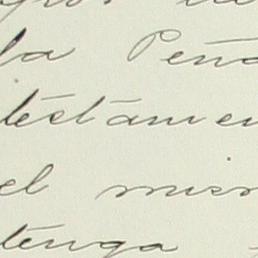 la Peña
testamen
el mism
tenga